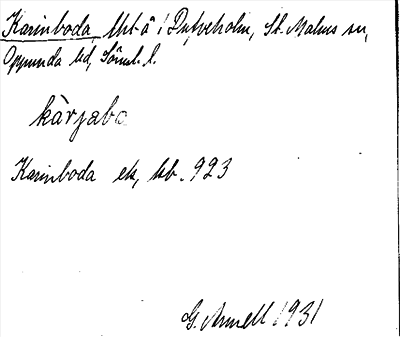 Karinboda, Utt å i Dufveholm, St. Malms sn,
Oppunda hd, Söml. l.
kàrjabo
Karinboda ek, kb. 923
G. Arnell 1931